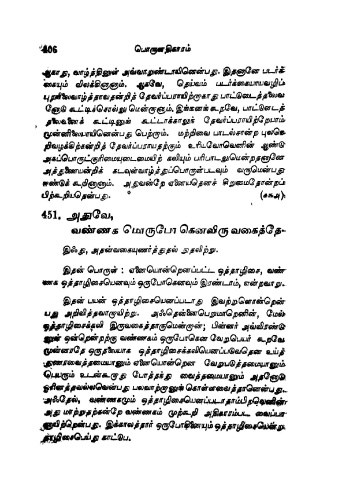 406 பொருளதிகாரம்
ஆகாது, வாழ்த்தினுள் அவ்வாறுண்டாயினென்பது. இதனானே படர்க்
கையும் விலக்கினானாம். ஆகவே, தெய்வம் படர்க்கையாயவழிப்
புறநிலைவாழ்த்தாவதன்றித் தேவர்ப்பராயிற்றாகாது பாட்டுடைத்தலைவ
னோடு கூட்டிச்சொல்லு மென்றானாம். இங்ஙனக் கூறவே, பாட்டுடைத்
தலைவனைக் கூட்டினுங் கூட்டாக்காலுந் தேவர்ப்பராயிற்றேயாம்
முன்னிலையாயினென்பது பெற்றாம். மற்றிவை பாடல்சான்ற புலனெ
றிவழக்கிற்கன்றித் தேவர்ப்பராயதற்கும் உரியவோவெனின் ஆண்டு
அகப்பொருட்குரிமையுடைமையிற் கலியும் பரிபாடலுமென்றதனானே
அத்துணையன்றிக் கடவுள்வாழ்த்துப்பொருள்படவும் வருமென்பது
ஈண்டுக் கூறினானாம். அதுவன்றே ஏனையதெனச் சிறுமைதோன்றப்
பிற்கூறியதென்பது.
451. அதுவே,
வண்ணக மொருபோ கெனவிரு வகைத்தே-
இஃது, அதன்வகையுணர்த்துதல் நுதலிற்று.
இதன் பொருள் : ஏனையொன்றெனப்பட்ட ஒத்தாழிசை, வண்
ணக ஒத்தாழிசையெனவும் ஒருபோகெனவும் இரண்டாம், என்றவாறு.
இதன் பயன் ஒத்தாழிசையெனப்படாது இவற்றுளொன்றென்
பது அறிவித்தவாறாயிற்று. அஃதென்னைபெறுமாறெனின், மேல்
ஒத்தாழிசைக்கலி இருவகைத்தாகுமென்றான்; பின்னர் அவ்விரண்டி
னுள் ஒன்றென்றற்கு வண்ணகம் ஒருபோகென வேறுபெயர் கூறவே
முன்னரதே ஒருதலையாக ஒத்தாழிசைக்கலியெனப்படுவதென உய்த்
துணரவைத்தமையானும் ஏனையொன்றென வேறுபடுத்தமையானும்
பெயரும் உடன்கூறாது போத்தந்து வைத்தமையானும் அதனோடு
ஓரினத்தவல்லவென்பது பலவாற்றானுங் கொள்ளவைத்தானென்பது.
அஃதேல், வண்ணகமும் ஒத்தாழிசையெனப்படாதாம்பிறவெனின்
அது மாற்றுதற்கன்றே வண்ணகம் முற்கூறி அதிகாரம்பட வைப்பா
னாயிற்றென்பது. இக்காலத்தார் ஒருபோகினையும் ஒத்தாழிசையென்று
தாழிசைபெய்து காட்டுப.